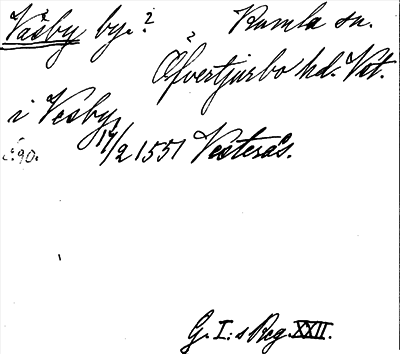 Våsby by.? Kumla sn.
Öfvertjurbo hd. Vstm.
i Vesby
s. 90. 17/2 1551 Vesterås.
G. I:s Reg. XXII.